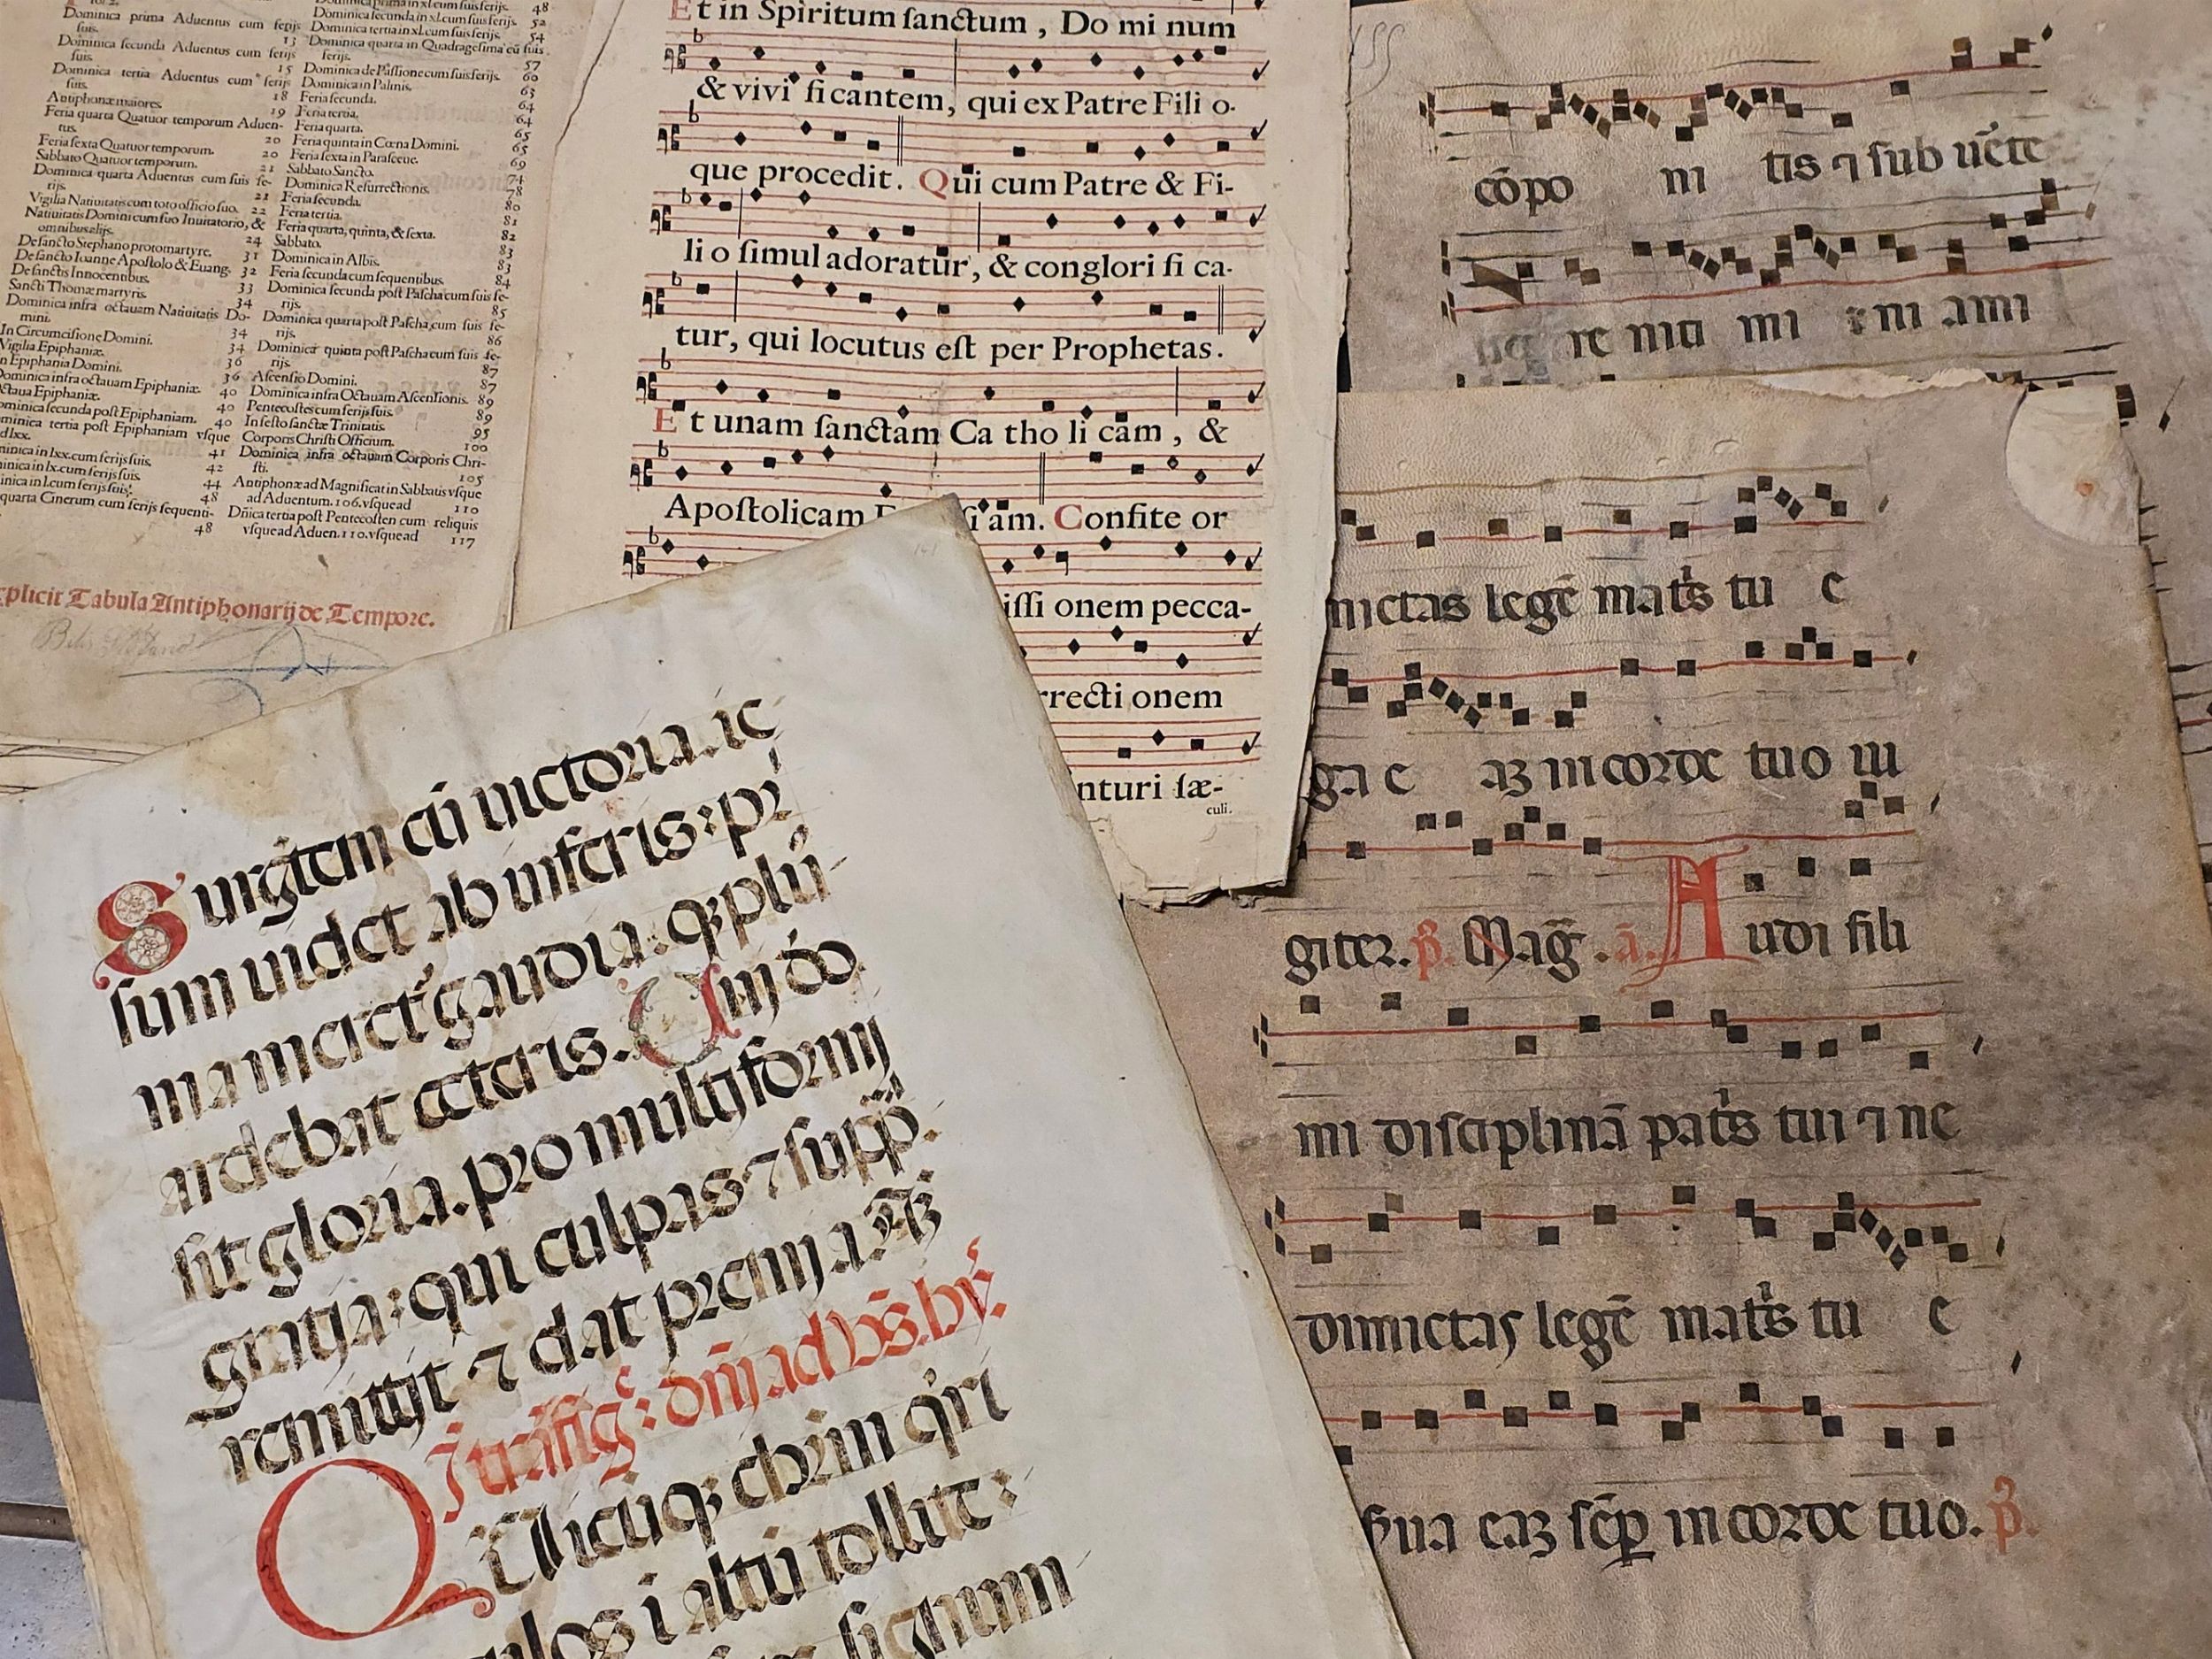 Dominica prima Aduentus cum ferijs
suis. 13
Dominica secunda Aduentus cum ferijs
suis. 15
Dominica tertia Aduentus cum ferijs
suis. 18
Antiphonæ maiores. 19
Feria quarta Quatuor temporum Aduen-
tus. 20
Feria sexta Quatuor temporum. 20
Sabbato Quatuor temporum. 21
Dominica quarta Aduentus cum suis fe-
rijs. 21
Vigilia Natiuitatis cum toto officio suo. 22
Natiuitatis Domini cum suo Inuitatorio, &
omnibus alijs. 24
De sancto Stephano protomartyre. 31
De sancto Ioanne Apostolo & Euang. 32
De sanctis Innocentibus. 33
Sancti Thomæ martyris. 34
Dominica infra octauam Natiuitatis Do-
mini. 34
In Circumcisione Domini. 34
Vigilia Epiphaniæ. 36
n Epiphania Domini. 36
ominica infra octauam Epiphaniæ. 40
ctaua Epiphaniæ. 40
ominica secunda post Epiphaniam. 40
minica tertia post Epiphaniam vsque
d lxx. 41
inica in lxx. cum ferijs suis. 42
inica in lx. cum ferijs suis. 44
inica in l. cum ferijs suis. 48
quarta Cinerum cum ferijs sequenti-
48
Dominica prima in xl. cum suis ferijs. 48
Dominica secunda in xl. cum suis ferijs. 52
Dominica tertia in xl. cum suis ferijs. 54
Dominica quarta in Quadragesima cū suis
ferijs. 57
Dominica de Passione cum suis ferijs. 60
Dominica in Palmis. 63
Feria secunda. 64
Feria tertia. 64
Feria quarta. 65
Feria quinta in Cœna Domini. 65
Feria sexta in Parasceue. 69
Sabbato Sancto. 74
Dominica Resurrectionis. 78
Feria secunda. 80
Feria tertia. 81
Feria quarta, quinta, & sexta. 82
Sabbato. 83
Dominica in Albis. 83
Feria secunda cum sequentibus. 84
Dominica secunda post Pascha cum suis fe-
rijs. 85
Dominica quarta post Pascha cum suis fe-
rijs. 86
Dominica quinta post Pascha cum suis fe-
rijs. 87
Ascensio Domini. 87
Dominica infra Octauam Ascensionis. 89
Pentecostes cum ferijs suis. 89
In festo sanctæ Trinitatis. 95
Corporis Christi Officium. 100
Dominica infra octauam Corporis Chri-
sti. 105
Antiphonæ ad Magnificat in Sabbatis vsque
ad Aduentum. 106. vsque ad 110
Dñica tertia post Pentecosten cum reliquis
vsque ad Aduen. 110. vsque ad 117
xplicit Tabula Antiphonarij de Tempore.
Et in Spiritum sanctum, Do mi num
& vivi ficantem, qui ex Patre Fili o-
que procedit. Qui cum Patre & Fi-
li o simul adoratur, & conglori fi ca-
tur, qui locutus est per Prophetas.
Et unam sanctam Ca tho li cam, &
Apostolicam E si am. Confite or
issi onem pecca-
rrecti onem
nturi sæ-
culi.
cōpo ni tis ⁊ sub uēte
re
mictas legē mat's tu e
ga e aꝫ in corde tuo iu
giter. p̄. Maḡ. ā. Audi fili
mi disciplinā pat's tui ⁊ ne
dimictas legē mat's tu e
ꝫ ua eaꝫ sēꝑ in corde tuo. p̄.
Surgētem cū uictoria. ic
sum uidet ab inferis: pri
ma meret' gaudia. q̄ plū
ardebat ceteris. Uni dō
sit gloria. pro multiformi
gratia: qui culpas ⁊ supp̄.
remittit ⁊ dat premia.
Quicūqꝫ
i altū tollite:
signum